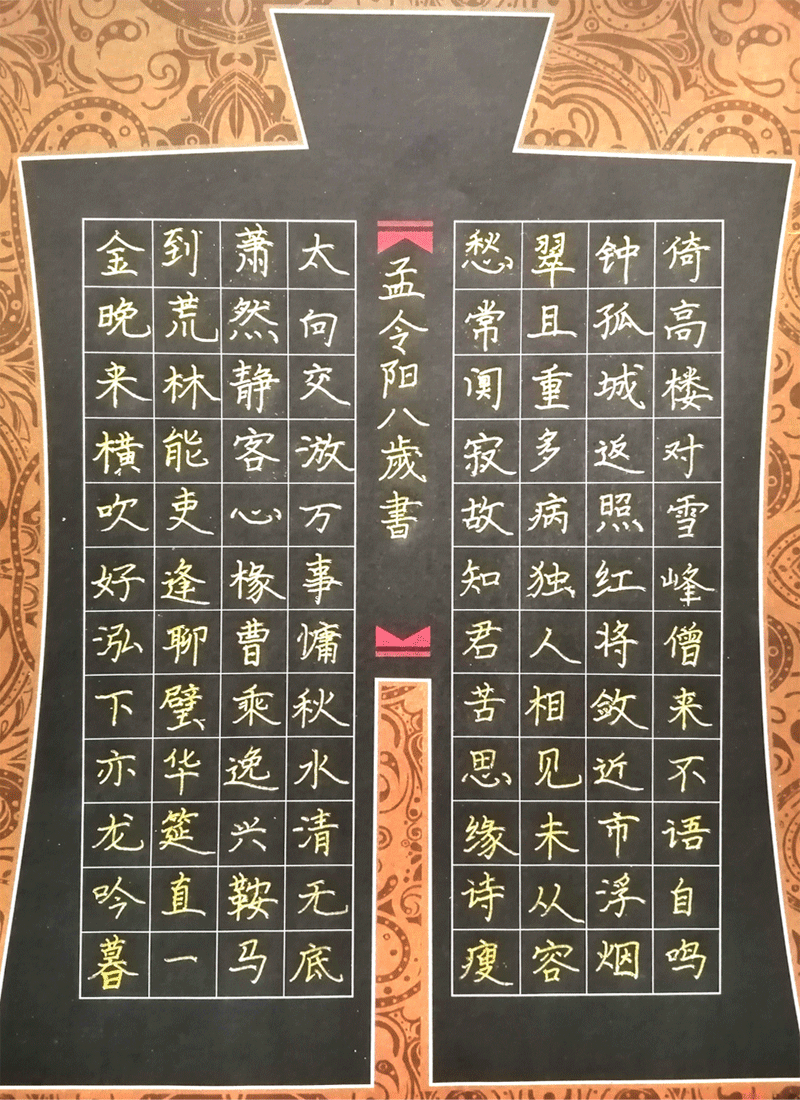 倚高楼对雪峰僧来不语自鸣
钟孤城返照红将敛近市浮烟
翠且重多病独人相见未从容
愁常阒寂故知君苦思缘诗瘦
孟令阳八歲書
太向交游万事慵秋水清无底
萧然静客心椽曹乘逸兴鞍马
到荒林能吏逢聊璧华筵直一
金晚来横吹好泓下亦龙吟暮